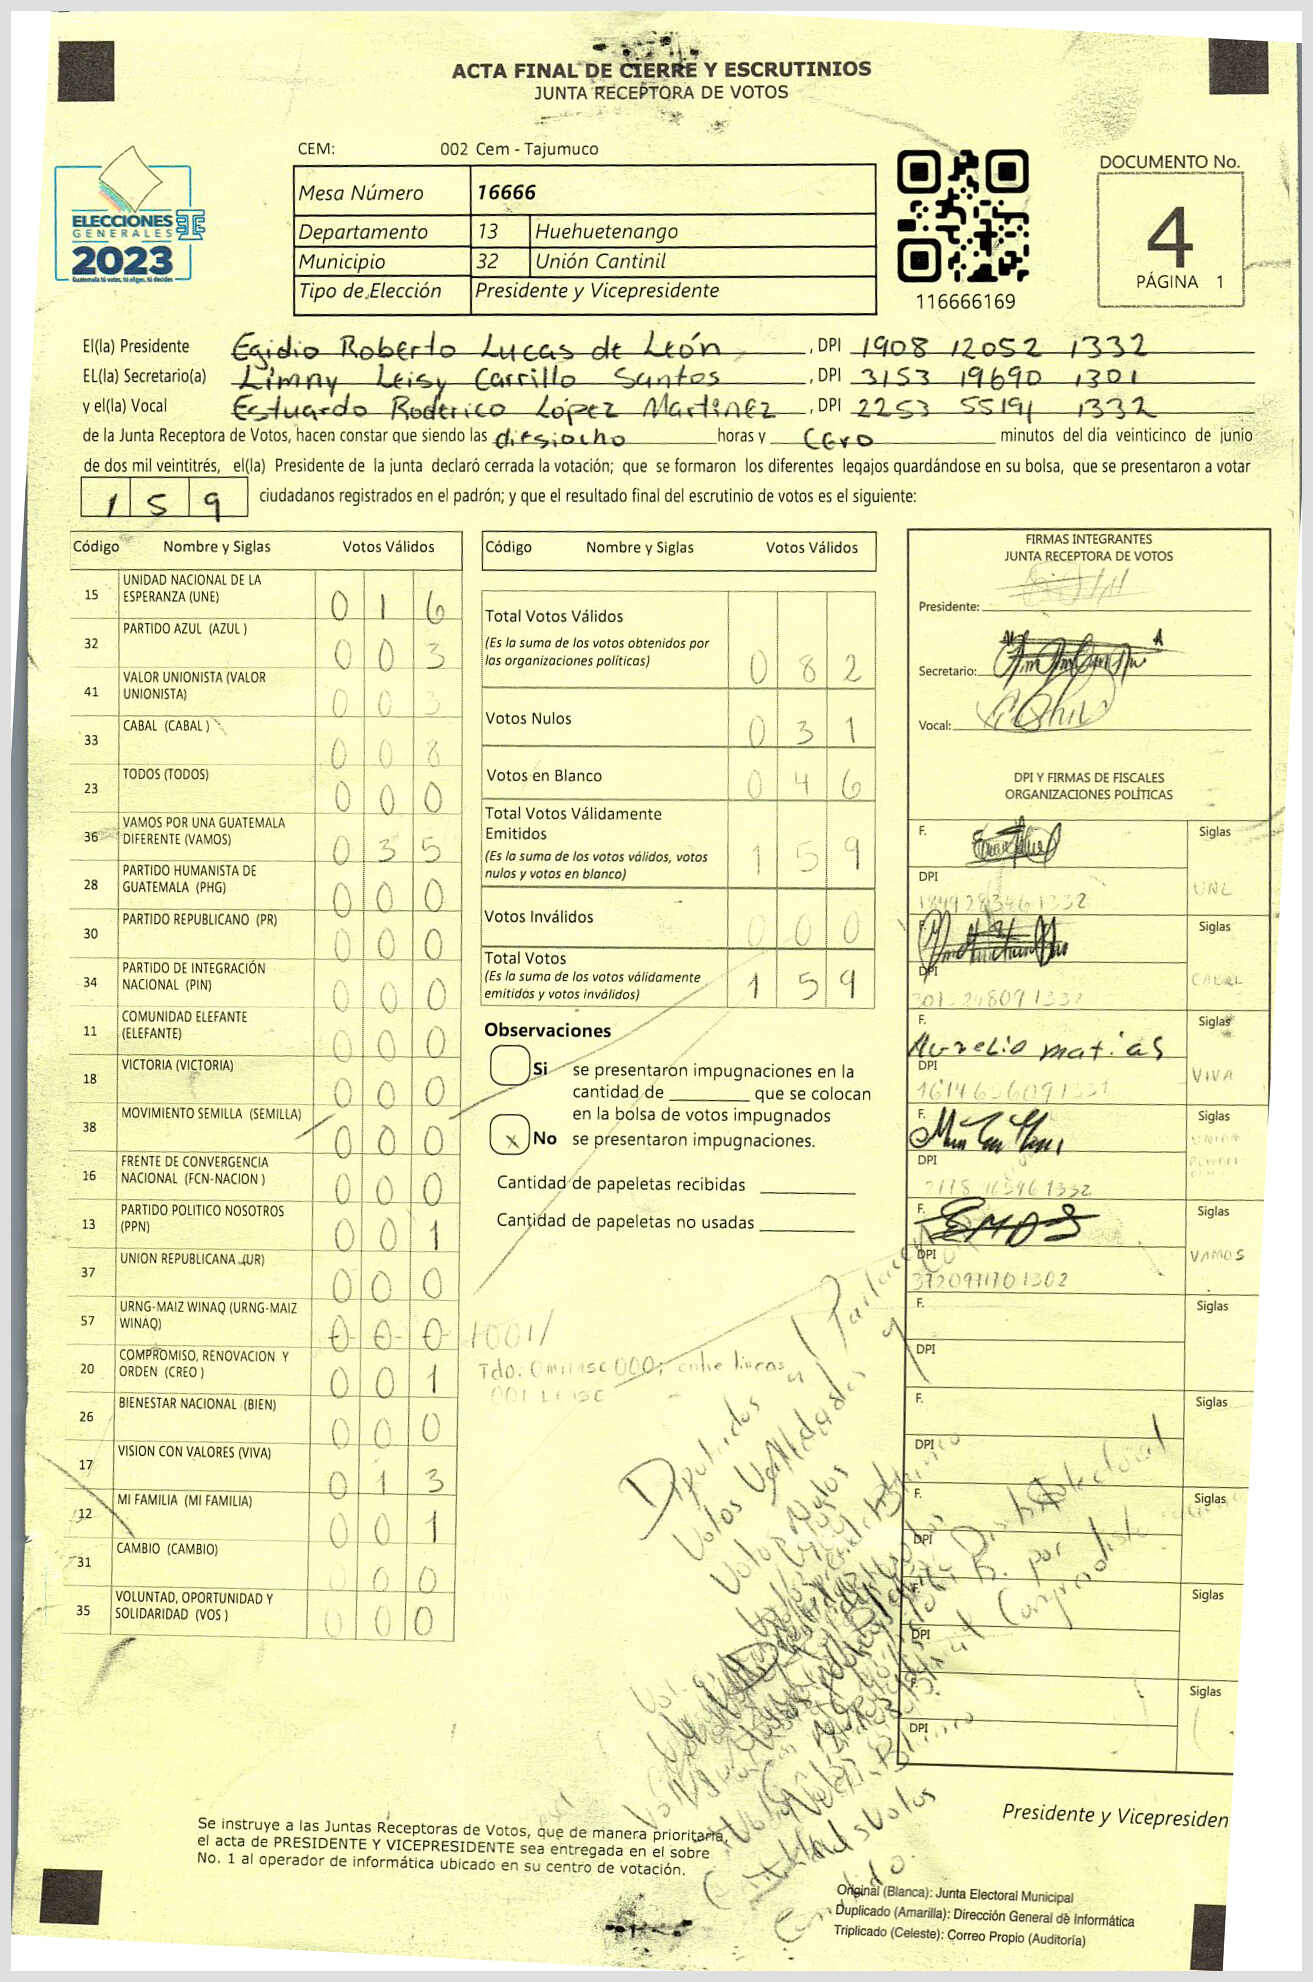 ACTA FINAL DE CIERRE Y ESCRUTINIOS
JUNTA RECEPTORA DE VOTOS
CEM: 002 Cem - Tajumuco
Mesa Número 16666
Departamento 13 Huehuetenango
Municipio 32 Unión Cantinil
Tipo de Elección Presidente y Vicepresidente
ELECCIONES
GENERALES
2023
116666169
DOCUMENTO No.
4
PÁGINA 1
El(la) Presidente Egidio Roberto Lucas de León, DPI 1908 12052 1332
EL(la) Secretario(a) Limny Leisy Carrillo Santos, DPI 3153 19690 1301
y el(la) Vocal Estuardo Roderico López Martínez, DPI 2253 55191 1332
de la Junta Receptora de Votos, hacen constar que siendo las diesiocho horas y cero minutos del día veinticinco de junio
de dos mil veintitrés, el(la) Presidente de la junta declaró cerrada la votación; que se formaron los diferentes legajos guardándose en su bolsa, que se presentaron a votar
159 ciudadanos registrados en el padrón; y que el resultado final del escrutinio de votos es el siguiente:
Código Nombre y Siglas Votos Válidos
15 UNIDAD NACIONAL DE LA ESPERANZA (UNE) 0 1 6
32 PARTIDO AZUL (AZUL ) 0 0 3
41 VALOR UNIONISTA (VALOR UNIONISTA) 0 0 3
33 CABAL (CABAL ) 0 0 8
23 TODOS (TODOS) 0 0 0
36 VAMOS POR UNA GUATEMALA DIFERENTE (VAMOS) 0 3 5
28 PARTIDO HUMANISTA DE GUATEMALA (PHG) 0 0 0
30 PARTIDO REPUBLICANO (PR) 0 0 0
34 PARTIDO DE INTEGRACIÓN NACIONAL (PIN) 0 0 0
11 COMUNIDAD ELEFANTE (ELEFANTE) 0 0 0
18 VICTORIA (VICTORIA) 0 0 0
38 MOVIMIENTO SEMILLA (SEMILLA) 0 0 0
16 FRENTE DE CONVERGENCIA NACIONAL (FCN-NACION ) 0 0 0
13 PARTIDO POLITICO NOSOTROS (PPN) 0 0 1
37 UNION REPUBLICANA (UR) 0 0 0
57 URNG-MAIZ WINAQ (URNG-MAIZ WINAQ) 0 0 0 /001/
20 COMPROMISO, RENOVACION Y ORDEN (CREO ) 0 0 1
26 BIENESTAR NACIONAL (BIEN) 0 0 0
17 VISION CON VALORES (VIVA) 0 1 3
12 MI FAMILIA (MI FAMILIA) 0 0 1
31 CAMBIO (CAMBIO) 0 0 0
35 VOLUNTAD, OPORTUNIDAD Y SOLIDARIDAD (VOS ) 0 0 0
Código Nombre y Siglas Votos Válidos
Total Votos Válidos 0 8 2
(Es la suma de los votos obtenidos por las organizaciones políticas)
Votos Nulos 0 3 1
Votos en Blanco 0 4 6
Total Votos Válidamente Emitidos 1 5 9
(Es la suma de los votos válidos, votos nulos y votos en blanco)
Votos Inválidos 0 0 0
Total Votos 1 5 9
(Es la suma de los votos válidamente emitidos y votos inválidos)
Observaciones
Si se presentaron impugnaciones en la
cantidad de ________ que se colocan
en la bolsa de votos impugnados
x No se presentaron impugnaciones.
Cantidad de papeletas recibidas
Cantidad de papeletas no usadas
Tdo. Omitase 000; entre lineas
001 Lease
Diputados
Votos
Votos Nulos
FIRMAS INTEGRANTES
JUNTA RECEPTORA DE VOTOS
Presidente:
Secretario:
Vocal:
DPI Y FIRMAS DE FISCALES
ORGANIZACIONES POLÍTICAS
F. Siglas
DPI
F. Siglas
DPI CABAL
F. Aurelio matias Siglas
DPI VIVA
F. Siglas
DPI
F. Siglas
DPI VAMOS
3720971701302
F. Siglas
DPI
F. Siglas
DPI
F. Siglas
DPI
F. Siglas
DPI
Siglas
DPI
Se instruye a las Juntas Receptoras de Votos, que de manera prioritaria,
el acta de PRESIDENTE Y VICEPRESIDENTE sea entregada en el sobre
No. 1 al operador de informática ubicado en su centro de votación.
Presidente y Vicepresiden
Original (Blanca): Junta Electoral Municipal
Duplicado (Amarilla): Dirección General de Informática
Triplicado (Celeste): Correo Propio (Auditoría)